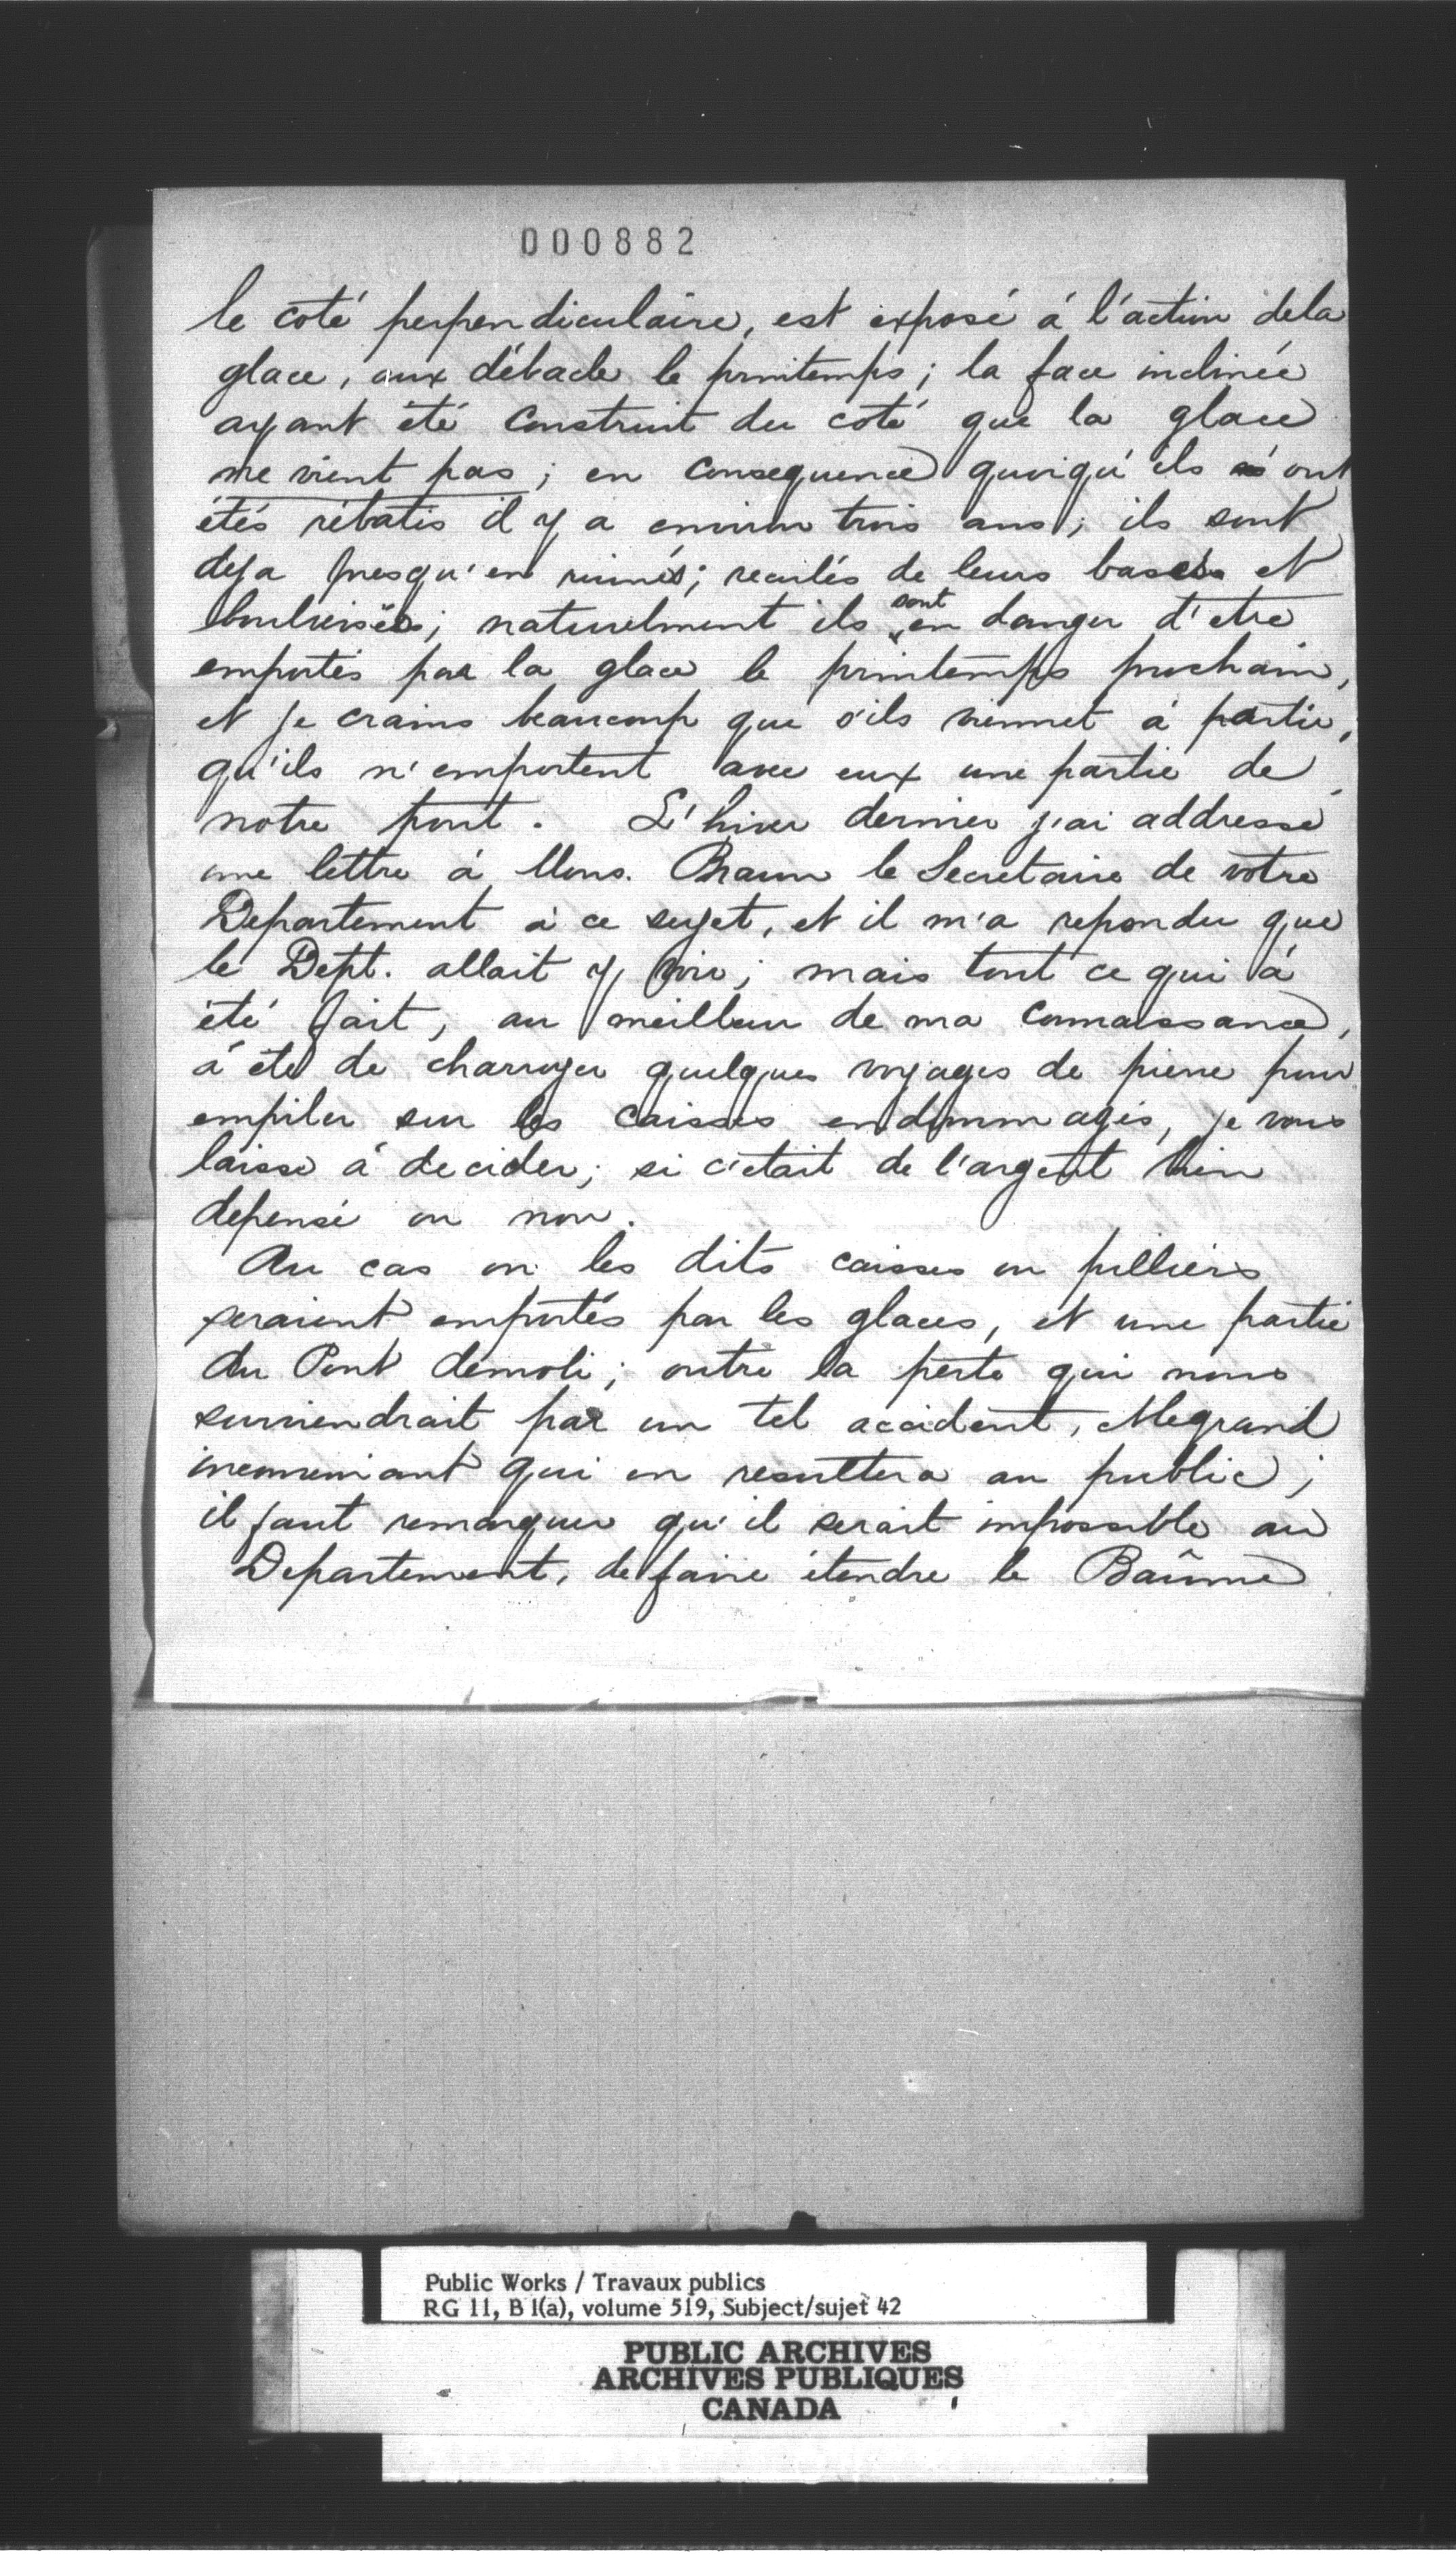 000882
le coté perpendiculaire, est exposé á l'áction dela
glace, aux débacle le printemps; la face inclinée
ayant été construit du coté que la glace
ne vient pas; en consequence quoiqu'ils ont
étés rébatis il y a environ trois ans; ils sont
deja presqu'en ruinés; reculés de leurs bases et
boulversés; naturelment ils sont en danger d'etre
emportés par la glace le printemps prochain,
et je crains beaucoup que s'ils viennet á partir,
qu'ils n'emportent avec eux une partie de
notre pont. L'hiver dernier j'ai addressé
une lettre á Mons. Braun le Secretaire de votre
Departement á ce sujet, et il m'a repondu que
le Dept. allait y voir; mais tout ce qui á
été fait, au meilleur de ma connaissance,
á été de charroyer quelques voyages de pierre pour
empiler sur les caisses endommagés, je vous
laisse á decider; si c'était de l'argent bien
depensé ou non.
Au cas ou les dits caisses ou pilliers
seraient emportés par les glaces, et une partie
du Pont démoli; outre la perte qui nous
surviendrait par un tel accident, et le grand
inconveniant qui en resultera au public;
il faut remarquer qu'il serait impossible au
Departement, de faire étendre le Baûme
Public Works / Travaux publics
RG 11, B 1(a), volume 519, Subject/sujet 42
PUBLIC ARCHIVES
ARCHIVES PUBLIQUES
CANADA